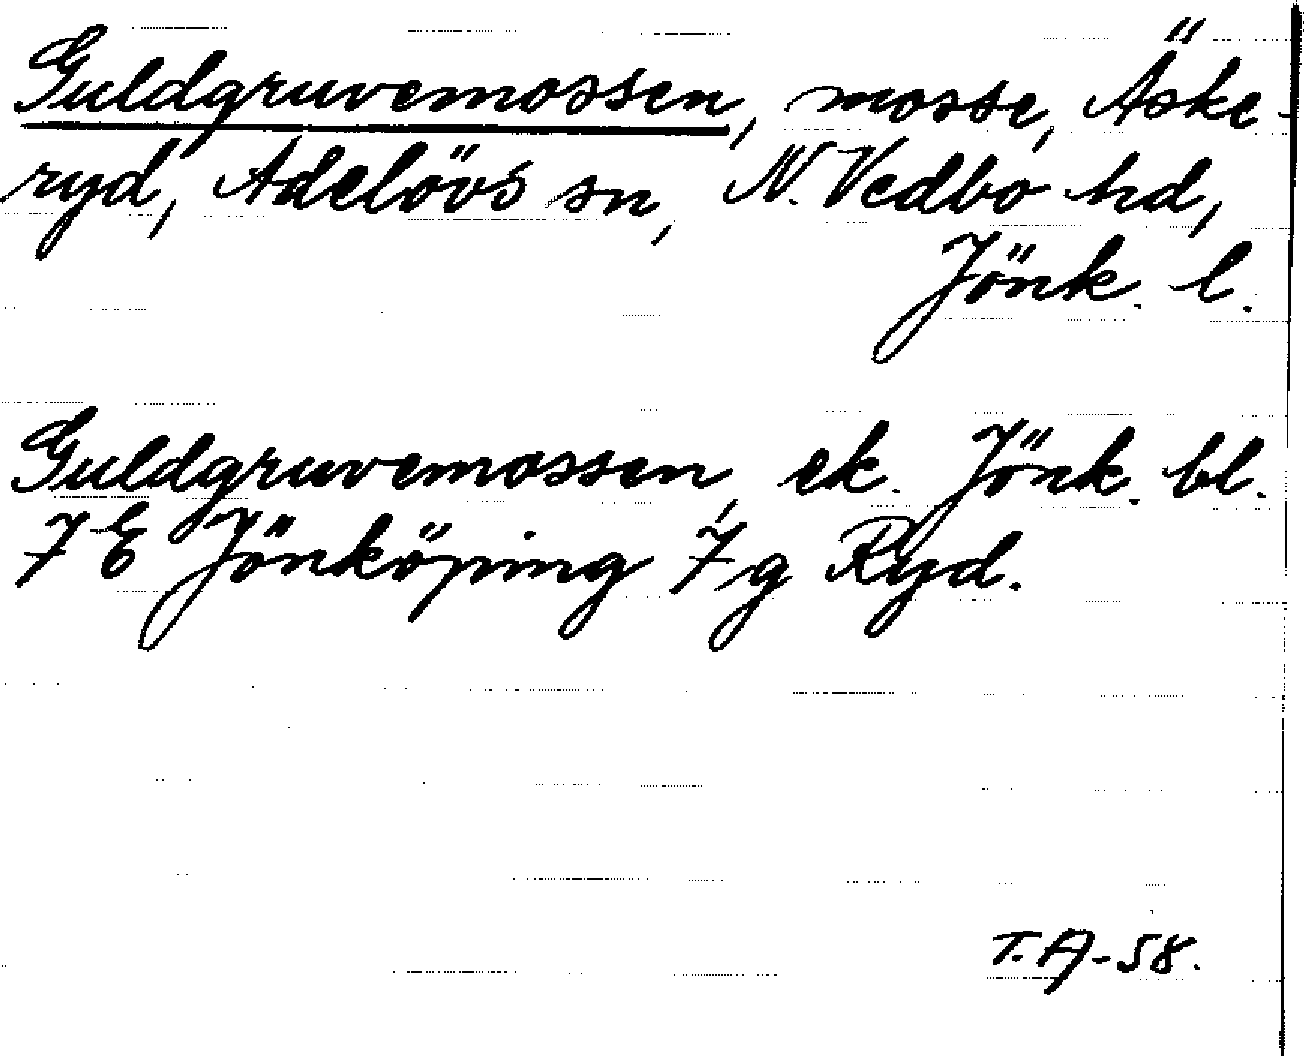 Guldgruvemossen, mosse, Äske-
ryd, Adelövs sn, N. Vedbo hd,
Jönk. l.
Guldgruvemossen, ek. Jönk. bl.
7 E Jönköping 7 g Ryd.
T. A-58.